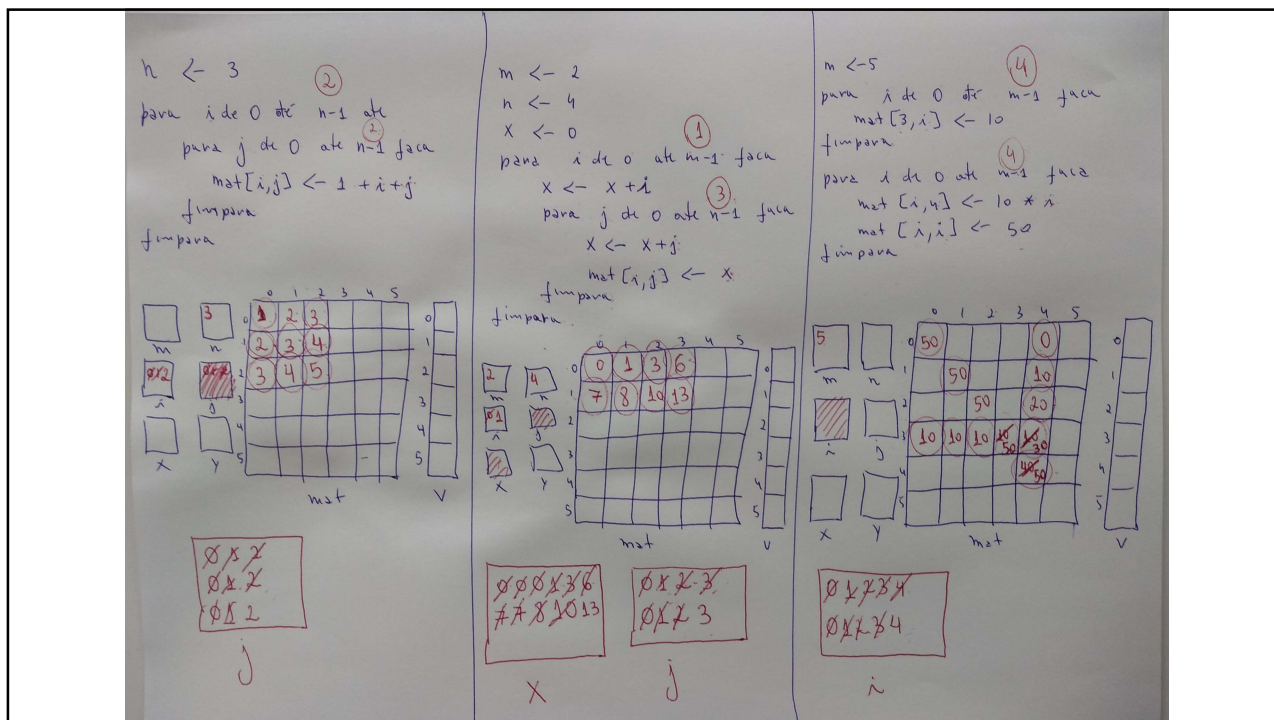 n <- 3
2
para i de 0 até n-1 ate
2
para j de 0 ate n-1 faca
mat[i,j] <- 1 + i + j
fimpara
fimpara
0 1 2 3 4 5
3
0 1 2 3
m n
1 2 3 4
0 1 2
2 3 4 5
i j
3
4
X Y
5
mat
V
0
1
2
3
4
5
0 1 2
0 1 2
0 1 2
j
m <- 2
n <- 4
X <- 0
1
para i de 0 ate m-1 faca
x <- x + i
3
para j de 0 ate n-1 faca
x <- x + j
mat[i,j] <- x
fimpara
fimpara
0 1 2 3 4 5
2 4
0 0 1 3 6
m n
1 7 8 10 13
0 1
2
i j
3
4
X Y
5
mat
V
0
1
2
3
4
5
0 0 0 1 3 6
7 7 8 10 13
X
0 1 2 3
0 1 2 3
j
m <- 5
4
para i de 0 até m-1 faca
mat[3,i] <- 10
fimpara
4
para i de 0 ate m-1 faca
mat[i,4] <- 10 * i
mat[i,i] <- 50
fimpara
0 1 2 3 4 5
5
0 50 0
m n
1 50 10
2 50 20
i j
3 10 10 10 10 50 10 30
4 40 50
X Y
5
mat
V
0
1
2
3
4
5
0 1 2 3 4
0 1 2 3 4
i